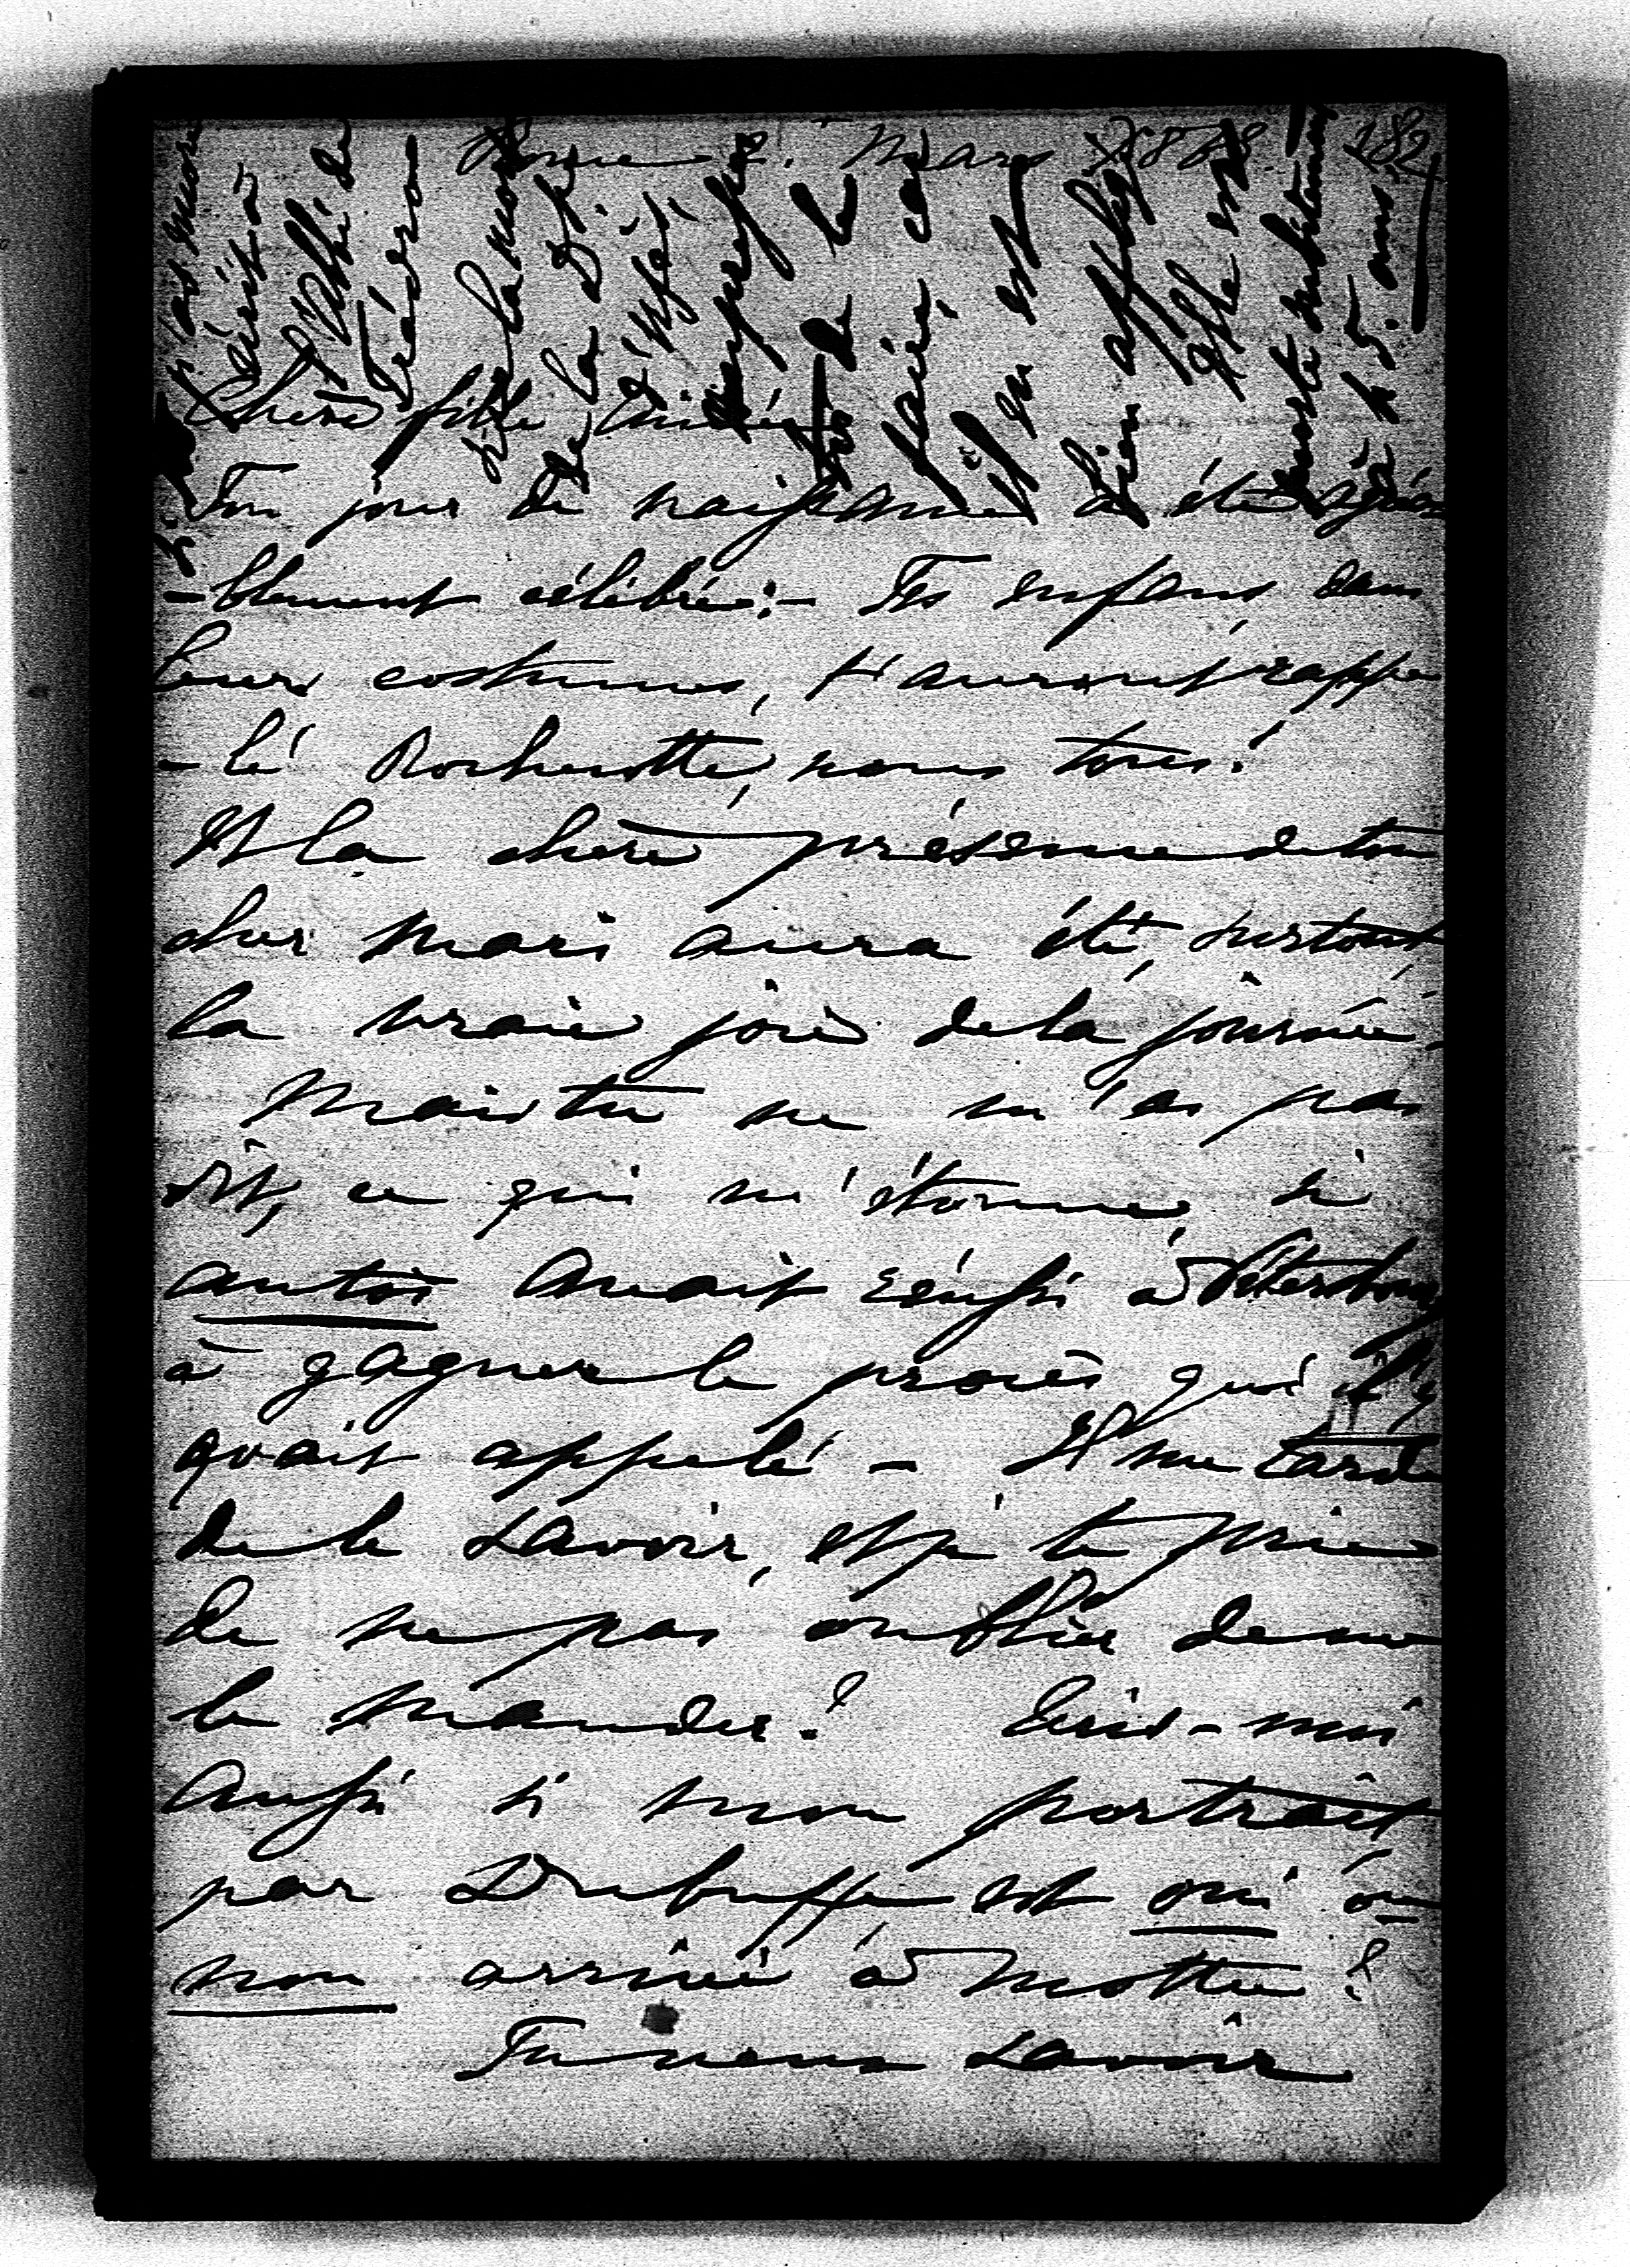 Rome 2. Mars 1878 182
Chère fille Aimée
Ton jour de naissance a été agréa
-blement célébré:- Tes enfans dans
leurs costumes, t'auront rappe
-lé Rochecotte, nous tous!
Et la chère présence de ton
cher mari aura été, surtout
la vraie joie de la journée.
Mais tu ne m'as pas
dit, ce qui m'étonne, si
Antoi avait réussi à Pétersbourg
à gagner le procès qui l'y
avait appelé - Il me tarde
de le savoir, et je te prie
de ne pas oublier de me
le mander! Écris-moi
aussi si mon portrait
par Dubuffe est oui ou
non arrivé à Motte?
Tu veux savoir
écrit à
l'Abbé de
de la mort
de la